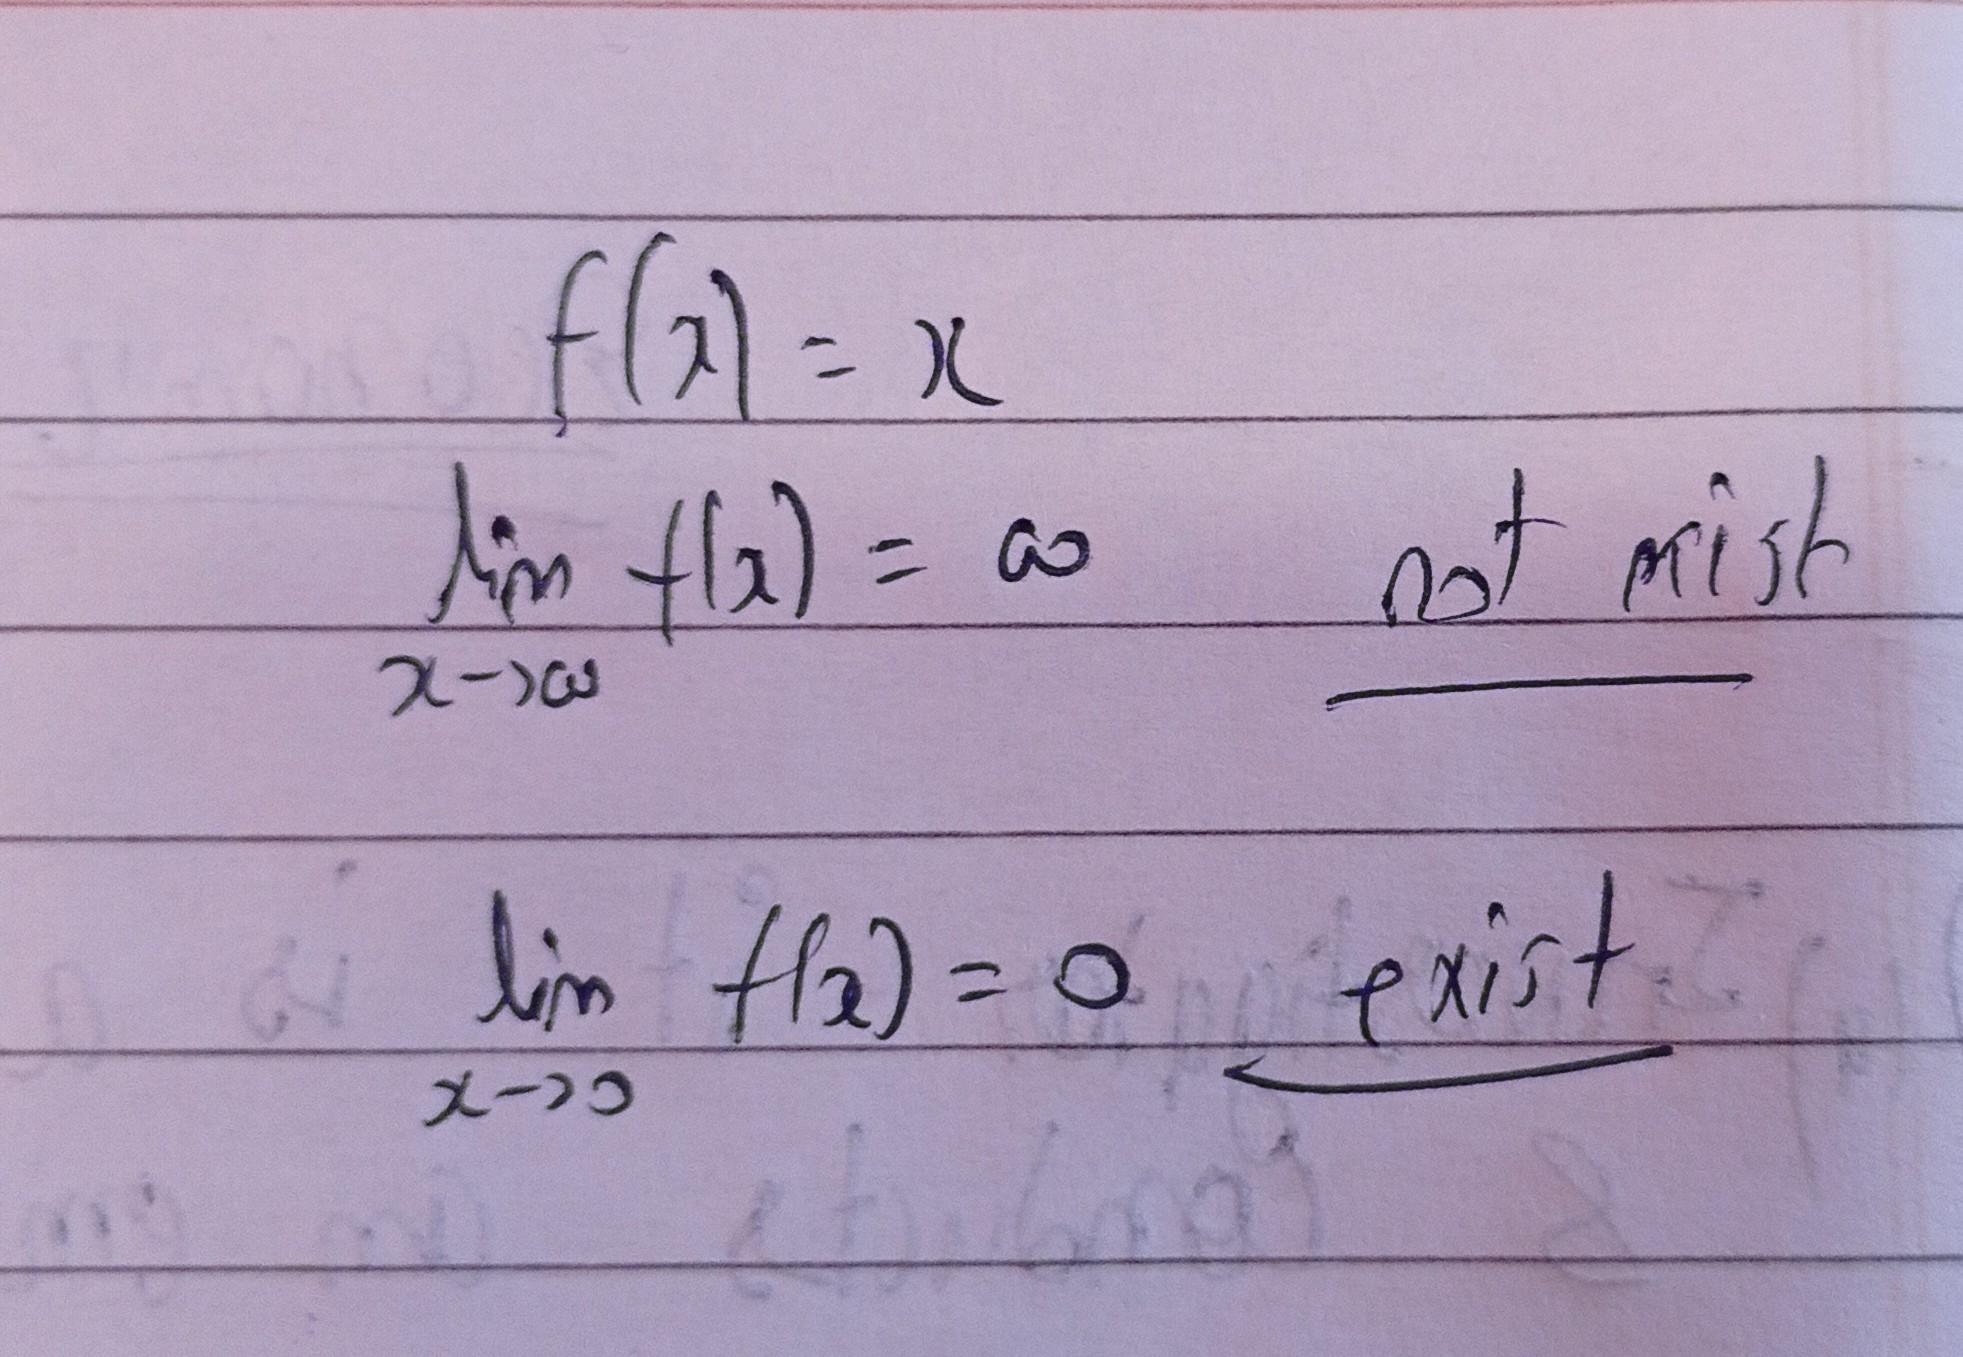 f(x) = x
lim f(x) = ∞ not exist
x→∞
lim f(x) = 0 exist
x→0